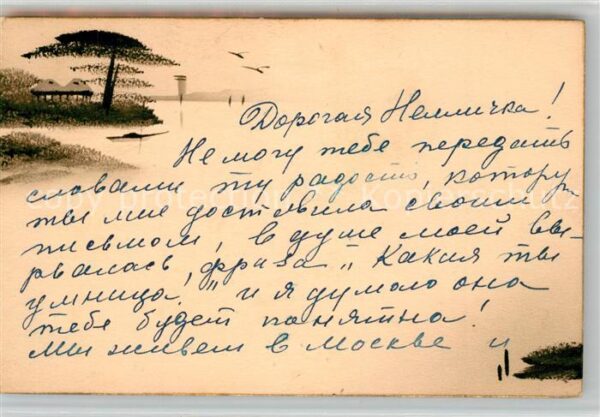 Дорогая Нелличка!
Не могу тебе передать
словами ту радость, котору
ты мне доставила своим
письмом, в душе моей вы-
рвалась, фраза „Какая ты
умница!" и я думаю она
тебе будет понятна!
Мы живем в Москве и